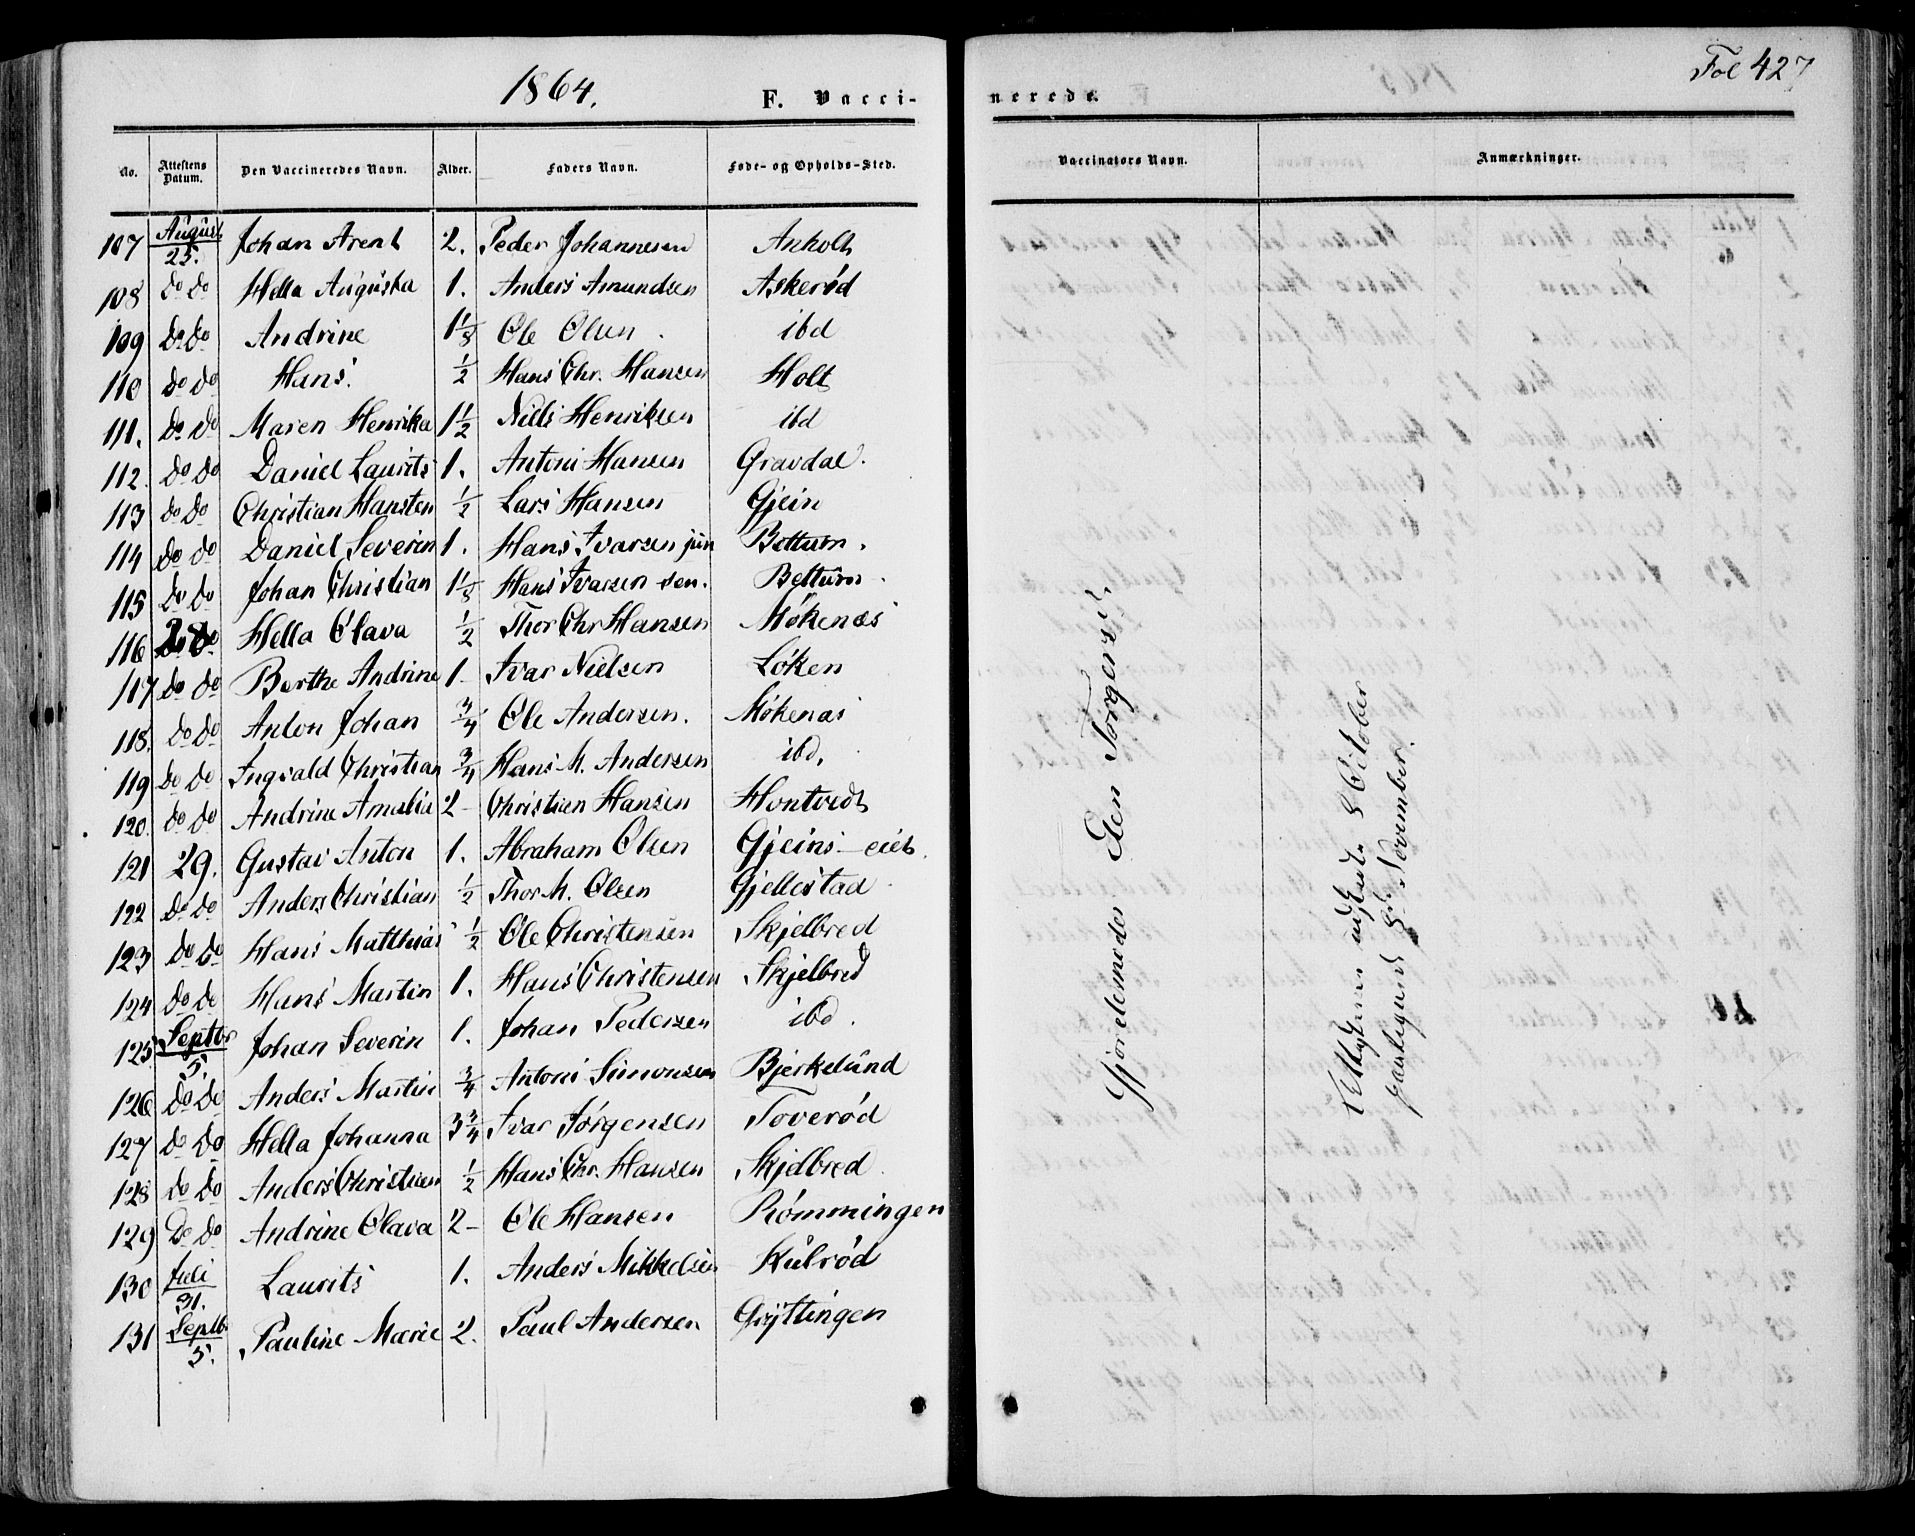 1864.
F. Vacci-
nerede.
Fol 427
No. Attestens Datum. Den Vaccineredes Navn. Alder. Faders Navn. Føde- og Opholds-Sted. Vaccinators Navn. Anmærkninger.
107 August 25. Johan Arent 2. Peder Johannesen Anholt
108 do do Hella Augusta 1. Anders Amundsen Askerød
109 do do Andrine 1 1/3 Ole Olsen ibd
110 do do Hans. 1/2 Hans Chr. Hansen Holt
111. do do Maren Henrika 1 1/2 Niels Henriksen ibd
112. do do Daniel Laurits 1. Antoni Hansen Gravdal.
113 do do Christian Hansten 1/2 Lars Hansen Gjein
114 do do Daniel Severin 1. Hans Ivarsen jun Bettum.
115 do do Johan Christian 1 1/3 Hans Ivarsen sen. Bettum.
116 do Hella Olava 1/2 Thor Chr Hansen Møkenæs
117 do do Berthe Andrine 1- Ivar Nielsen Løken
118. do do Anton Johan 3/4 Ole Andersen. Møkenas
119 do do Ingvald Christian 3/4 Hans M. Andersen ibd.
120. do do Andrine Amalia 2- Christian Hansen Hontvedt
121 29. Gustav Anton 1. Abraham Olsen Gjeins-eiet.
122 do do Anders Christian 1/2 Thor M. Olsen Gjellestad
123 do do Hans Matthias 1/2 Ole Christensen Skjelbred
124 do do Hans Martin 1. Hans Christensen Skjelbred
125 Septbr 5. Johan Severin 1. Johan Pedersen ibd.
126 do do Anders Martin 3/4 Antoni Simonsen Bjerkelund
127 do do Hella Johanna 3 3/4 Ivar Jørgensen Toverød
128 do do Anders Christian 1/2 Hans Chr. Hansen Skjelbred
129 do do Andrine Olava 2- Ole Hansen Rømmingen
130 Juli 31. Laurits 1. Anders Mikkelsen Kulrød
131 Septb 5. Pauline Marie 2. Paul Andersen Gryttingen
Gjordemoder Elen Torgersd.
October
November.